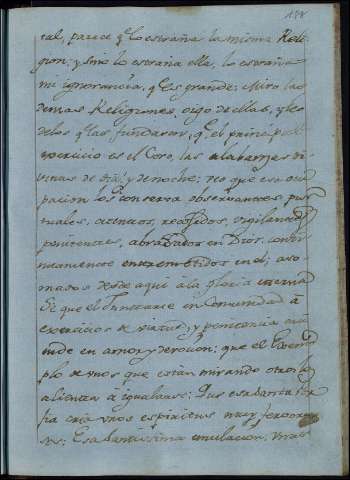 tal, parece q̃ lo estraña la misma Reli-
gion, y sino lo estraña ella, lo estraña
mi ignorancia, q̃ es grande: Miro las
demas Religiones, oigo de ellas, y leo
de los q̃ las fundaron, q̃ el principal
exercicio es el Coro, las alabanzas di-
vinas de dia, y de noche: veo que esa ocu-
pacion les conserva observantes, pun-
tuales, atentos, recogidos, vigilantes,
penitentes, abrazados en Dios, conti-
nuamente entremetidos en el; aso-
mados desde aqui à la gloria eterna
Sè que el Juntarse in Comunidad à
exercicios de virtud, y penitencia en-
ciende en amor, y devocion: que el Exem-
plo de unos que estan mirando otros
alienta à igualarse: Que esa santa
cria unos espiritus muy fervoro-
sos: Esa santissima emulacion: